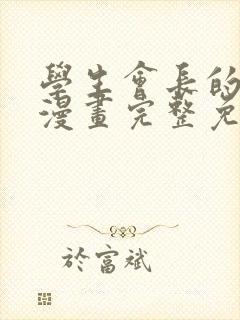 學生會長的
漫畫完整免
於富斌